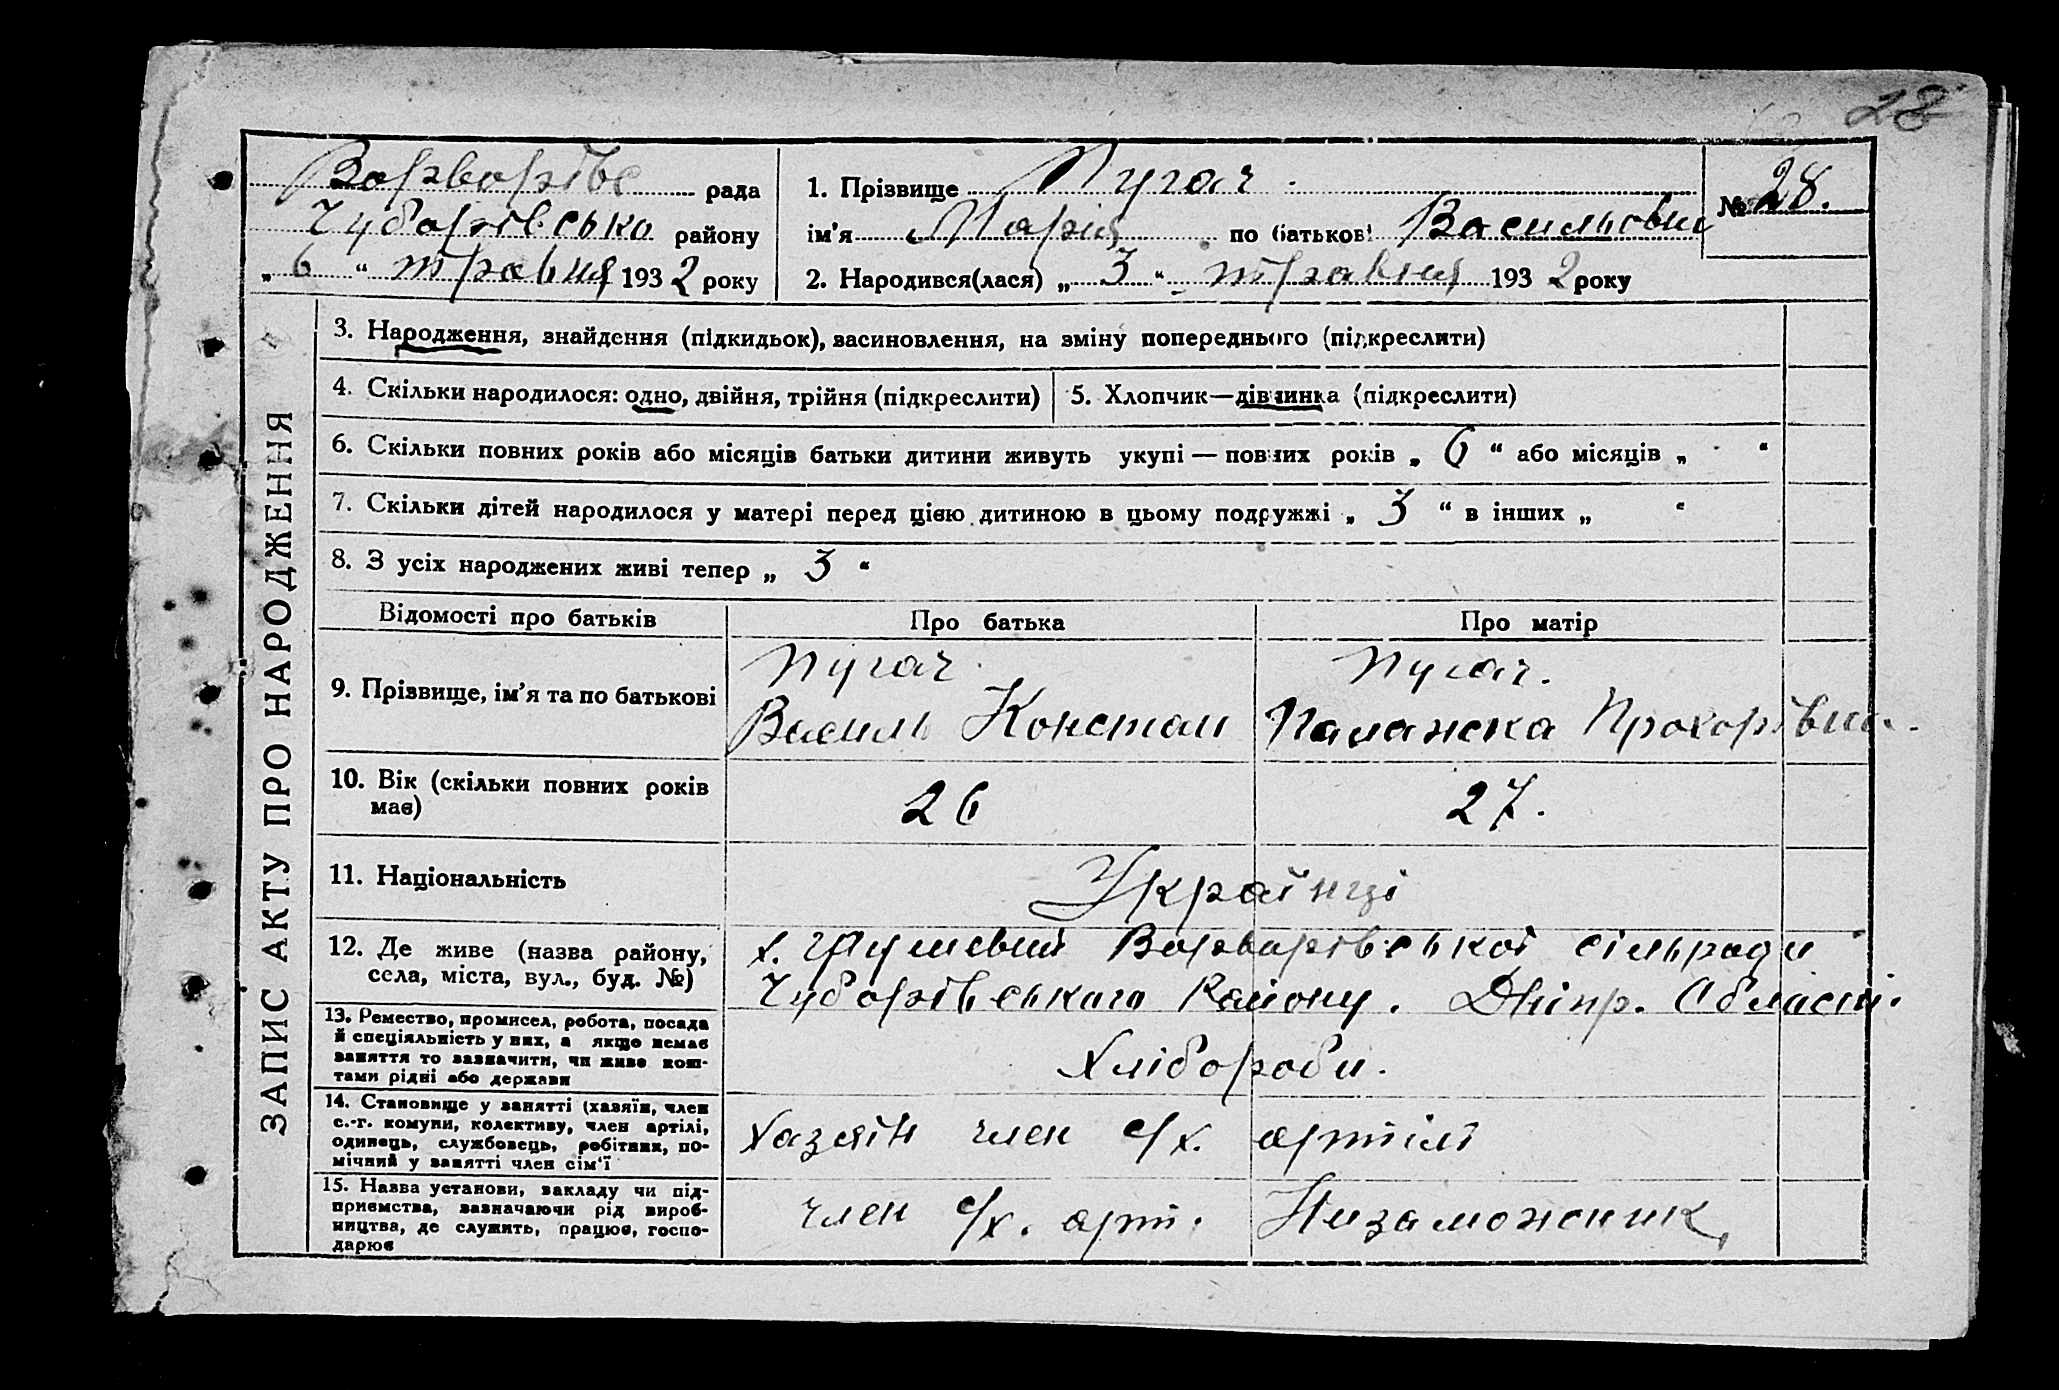 28
Варварівс рада
Чубарівсько району
„ 6 “ травня 1932 року
1. Прізвище Пугач
ім'я Марія по батькові Васильовни
№ 28.
2. Народився(лася) „ 3 “ травня 1932 року
ЗАПИС АКТУ ПРО НАРОДЖЕННЯ
3. Народження, знайдення (підкидьок), засиновлення, на зміну попереднього (підкреслити)
4. Скільки народилося: одно, двійня, трійня (підкреслити)
5. Хлопчик—дівчинка (підкреслити)
6. Скільки повних років або місяців батьки дитини живуть укупі — повних років „ 6 “ або місяців „ “
7. Скільки дітей народилося у матері перед цією дитиною в цьому подружжі „ 3 “ в інших „ “
8. З усіх народжених живі тепер „ 3 “
Відомості про батьків
Про батька
Про матір
9. Прізвище, ім'я та по батькові
Пугач
Василь Констан
Пугач.
Палажка Прохорівни.
10. Вік (скільки повних років
має)
26
27.
11. Національність
Українці
12. Де живе (назва району,
села, міста, вул., буд. №)
х. Варварівської сільради
Чубарівського Району. Дніпр. Області.
13. Ремество, промисел, робота, посада
й спеціяльність у них, а якщо немає
заняття то зазначити, чи живе кош-
тами рідні або держави
Хлібороби.
14. Становище у занятті (хазяїн, член
с.-г. комуни, колективу, член артілі,
одинець, службовець, робітник, по-
мічний у занятті член сім'ї
Хазяїн член с/х. артілі
15. Назва установи, закладу чи під-
приємства, зазначаючи рід вироб-
ництва, де служить, працює, госпо-
дарює
член с/х. арт. Незаможник